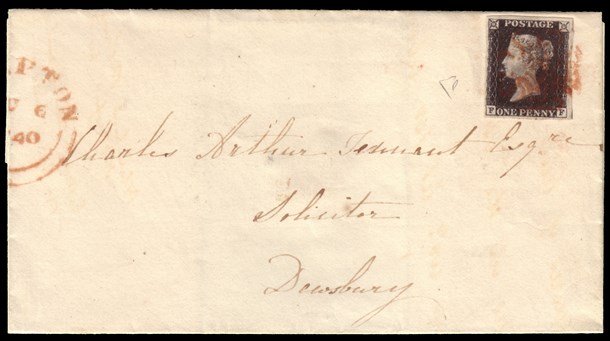 POSTAGE
P ONE PENNY F
PTON
6
40
Charles Arthur Tennant Esqre
Solicitor
Dewsbury